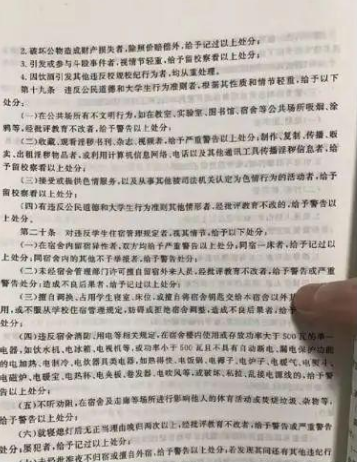 2.破坏公物造成财产损失者,除照价赔偿外,给予记过以上处分;
3.引发或参与斗殴事件者,视情节轻重,给予留校察看以上处分;
4.因饮酒引发其他违反校规校纪行为者,均从重处理。
第十九条 违反公民道德和大学生行为准则者,根据其性质和情节轻重,给予以下
处分:
(一)在公共场所有不文明行为,如在教室、实验室、图书馆、宿舍等公共场所吸烟、涂
鸦等,经批评教育不改者,给予警告以上处分;
(二)收藏、观看淫秽书刊、杂志、视频者,给予严重警告以上处分;制作、复制、传播、贩
卖、出租淫秽物品者,或利用计算机信息网络、电话以及其他通讯工具传播淫秽信息者,给
予留校察看以上处分;
(三)接受或提供色情服务,以及从事其他被司法机关认定为色情行为的活动者,给予
留校察看以上处分;
(四)有违反公民道德和大学生行为准则其他情形者,经批评教育不改的,给予警告以
上处分。
第二十条 对违反学生住宿管理规定者,视其情节,给予以下处分:
(一)在宿舍内留宿异性者,双方均给予严重警告以上处分;同宿一床者,给予记过以
上处分;同宿舍内的其他不予举报者,给予警告处分;
(二)未经宿舍管理部门许可擅自留宿外来人员,经批评教育不改者,给予警告或严重
警告处分;造成不良后果者,给予记过以上处分;
(三)擅自调换、占用学生寝室、床位,或擅自将宿舍钥匙交给本宿舍以外
用,或不服从学校住宿管理规定,妨碍或拒绝宿舍调整,造成不良后果者,给予
处分;
(四)违反宿舍消防、用电等相关规定,在宿舍楼内使用或存放功率大于500瓦的单一
电器,如饮水机、电冰箱、电视机等,或功率小于500瓦且不具有自动断电、漏电保护功能
的电加热、电制冷、电炊器具类电器,如热得快、电饭锅、电褥子、电炉子、电暖气、电熨斗、
电磁炉、电暖宝、电热杯、电夹板、卷发器、电吹风等,或破坏、私接、乱接电源线的,给予警
告以上处分;
(五)不听劝阻,在宿舍及走廊等场所进行影响他人的体育活动或焚烧垃圾、杂物等,
给予警告以上处分;
(六)就寝熄灯后无正当理由晚归两次以上,经批评教育不改者,给予警告或严重警告
处分;屡犯者,给予记过以上处分;
未经批准夜不归宿或擅自外宿,给予警告以上处分,若发现其间还有其他违纪行